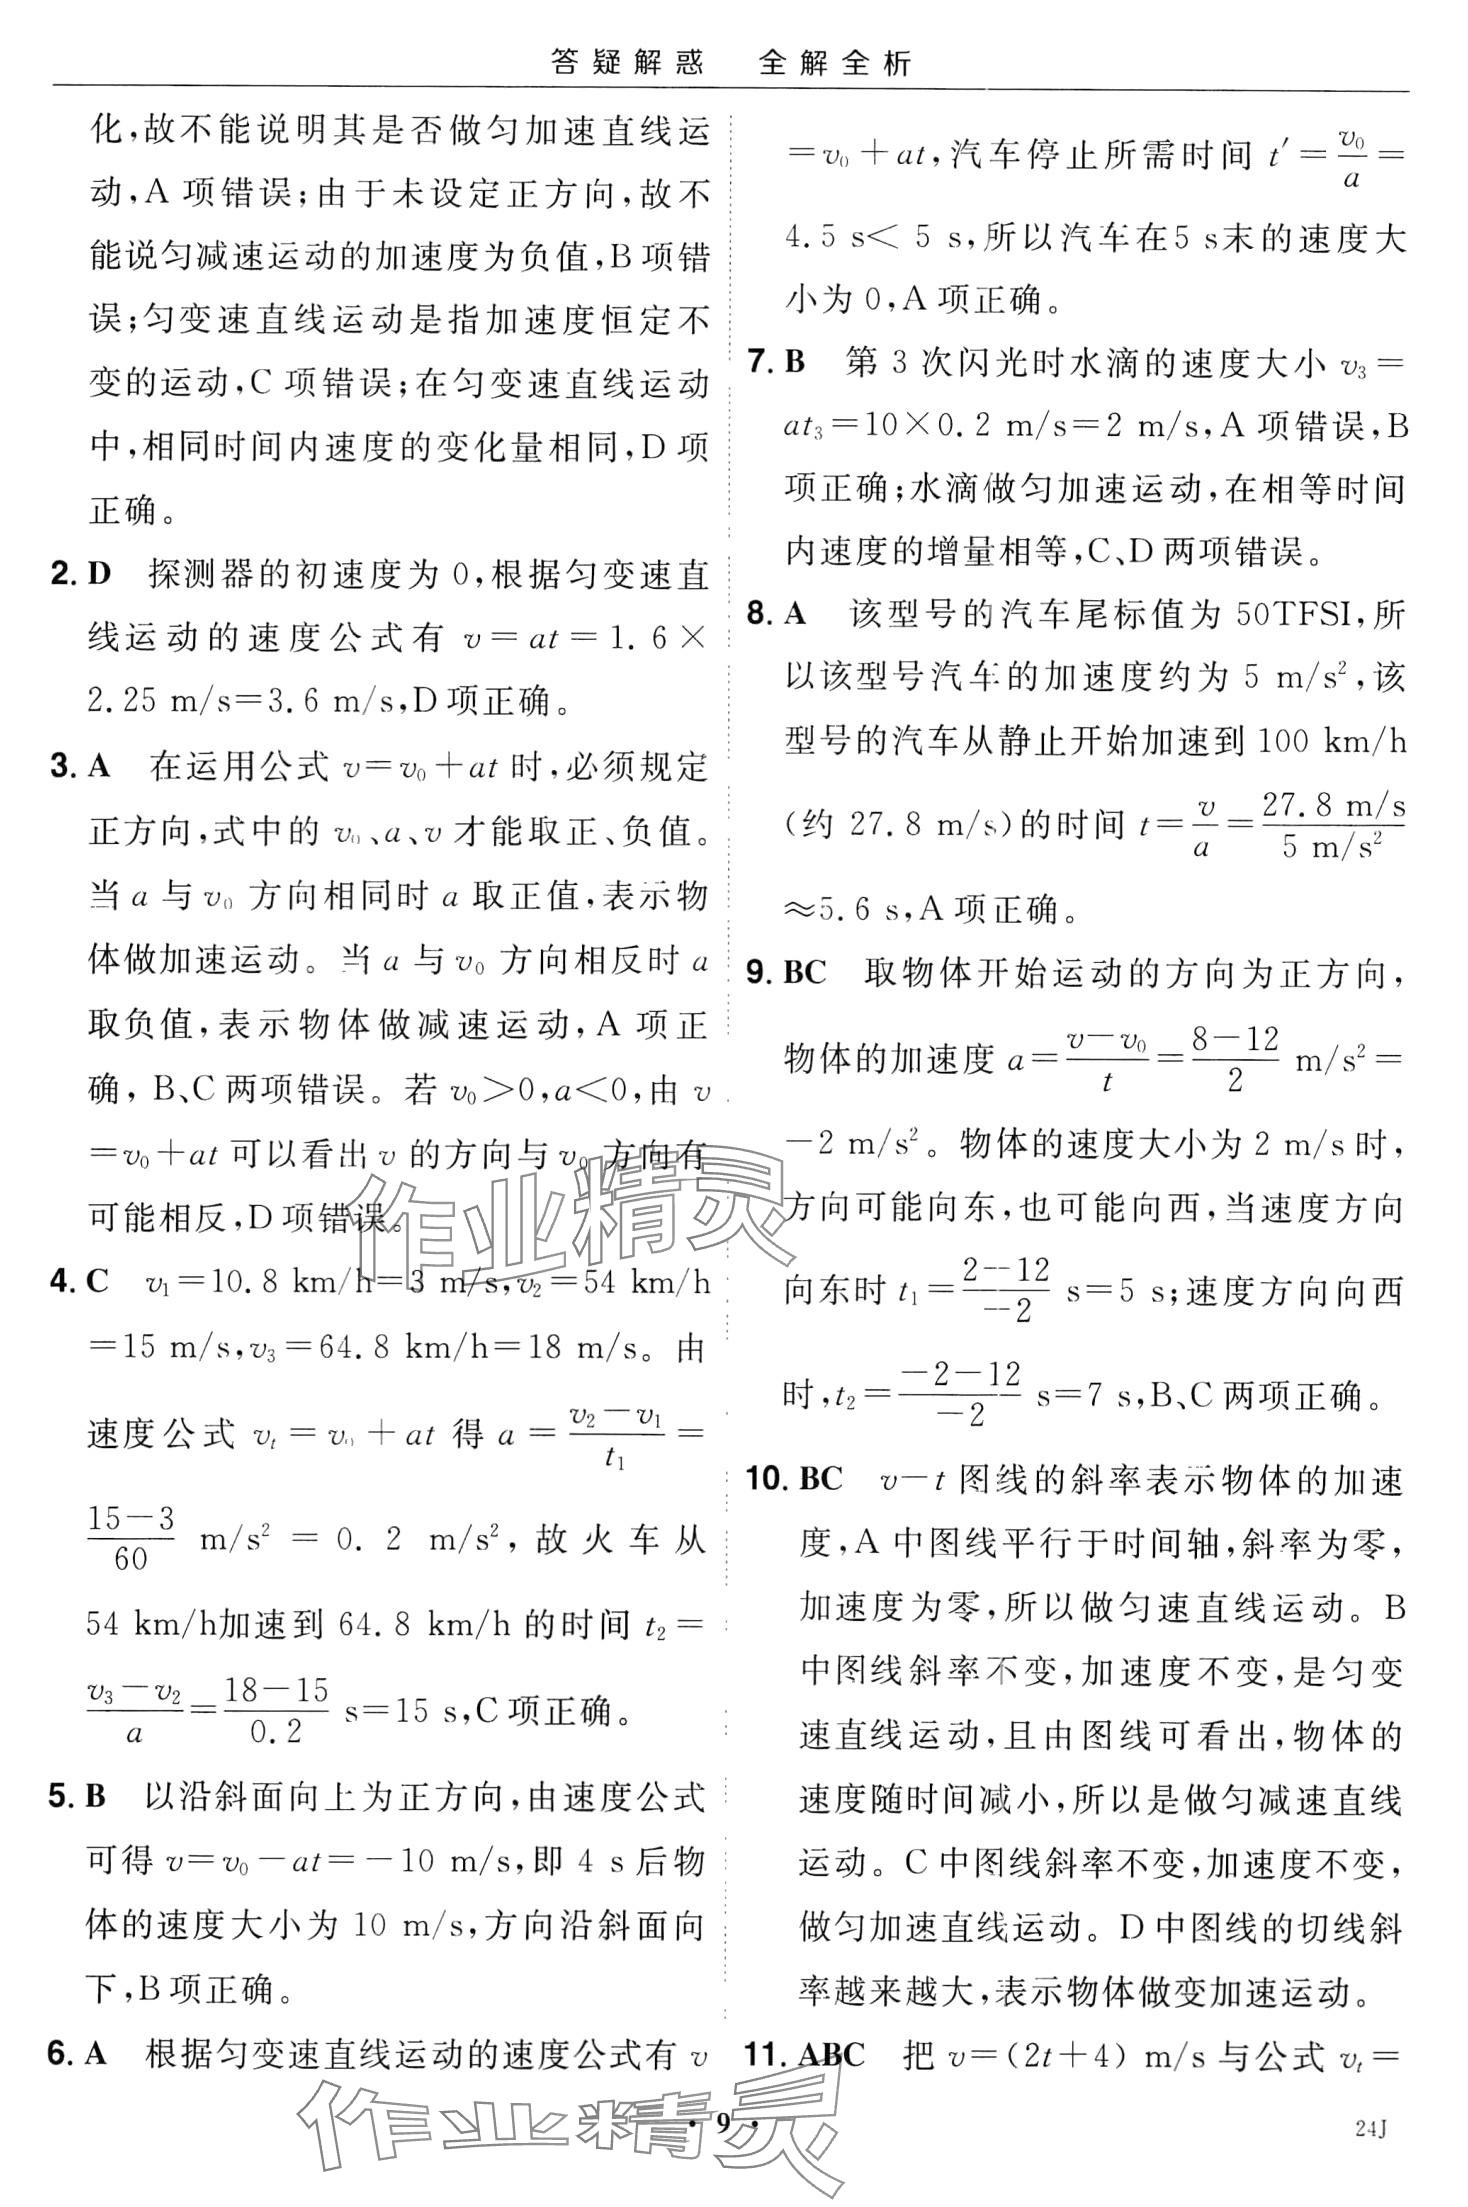 答疑解惑 全解全析
化,故不能说明其是否做匀加速直线运
动,A 项错误;由于未设定正方向,故不
能说匀减速运动的加速度为负值,B项错
误;匀变速直线运动是指加速度恒定不
变的运动,C 项错误;在匀变速直线运动
中,相同时间内速度的变化量相同,D 项
正确。
2. D 探测器的初速度为 0,根据匀变速直
线运动的速度公式有 v=at=1.6×
2.25 m/s=3.6 m/s,D项正确。
3. A 在运用公式 v=v₀+at 时,必须规定
正方向,式中的 v₀、a、v 才能取正、负值。
当 a 与 v₀ 方向相同时 a 取正值,表示物
体做加速运动。当 a 与 v₀ 方向相反时 a
取负值,表示物体做减速运动,A 项正
确, B、C 两项错误。若 v₀>0,a<0,由 v
=v₀+at 可以看出 v 的方向与 v₀ 方向有
可能相反,D 项错误。
4. C v₁=10.8 km/h=3 m/s,v₂=54 km/h
=15 m/s,v₃=64.8 km/h=18 m/s。由
速度公式 vₜ=v₀+at 得 a=(v₂-v₁)/t₁=
(15-3)/60 m/s²=0.2 m/s²,故火车从
54 km/h加速到 64.8 km/h 的时间 t₂=
(v₃-v₂)/a=(18-15)/0.2 s=15 s,C项正确。
5. B 以沿斜面向上为正方向,由速度公式
可得 v=v₀-at=-10 m/s,即 4 s 后物
体的速度大小为 10 m/s,方向沿斜面向
下,B项正确。
6. A 根据匀变速直线运动的速度公式有 v
=v₀+at,汽车停止所需时间 t′=v₀/a=
4.5 s< 5 s,所以汽车在5 s末的速度大
小为 0,A 项正确。
7. B 第 3 次闪光时水滴的速度大小 v₃=
at₃=10×0.2 m/s=2 m/s,A 项错误,B
项正确;水滴做匀加速运动,在相等时间
内速度的增量相等,C、D两项错误。
8. A 该型号的汽车尾标值为 50TFSI,所
以该型号汽车的加速度约为 5 m/s²,该
型号的汽车从静止开始加速到 100 km/h
(约 27.8 m/s)的时间 t=v/a=(27.8 m/s)/(5 m/s²)
≈5.6 s,A 项正确。
9. BC 取物体开始运动的方向为正方向,
物体的加速度 a=(v-v₀)/t=(8-12)/2 m/s²=
-2 m/s²。物体的速度大小为 2 m/s 时,
方向可能向东,也可能向西,当速度方向
向东时 t₁=(2-12)/(-2) s=5 s;速度方向向西
时,t₂=(-2-12)/(-2) s=7 s,B、C 两项正确。
10. BC v-t 图线的斜率表示物体的加速
度,A 中图线平行于时间轴,斜率为零,
加速度为零,所以做匀速直线运动。B
中图线斜率不变,加速度不变,是匀变
速直线运动,且由图线可看出,物体的
速度随时间减小,所以是做匀减速直线
运动。C 中图线斜率不变,加速度不变,
做匀加速直线运动。D 中图线的切线斜
率越来越大,表示物体做变加速运动。
11. ABC 把 v=(2t+4) m/s 与公式 vₜ=
作业精灵
作业精灵
· 9 ·
24J